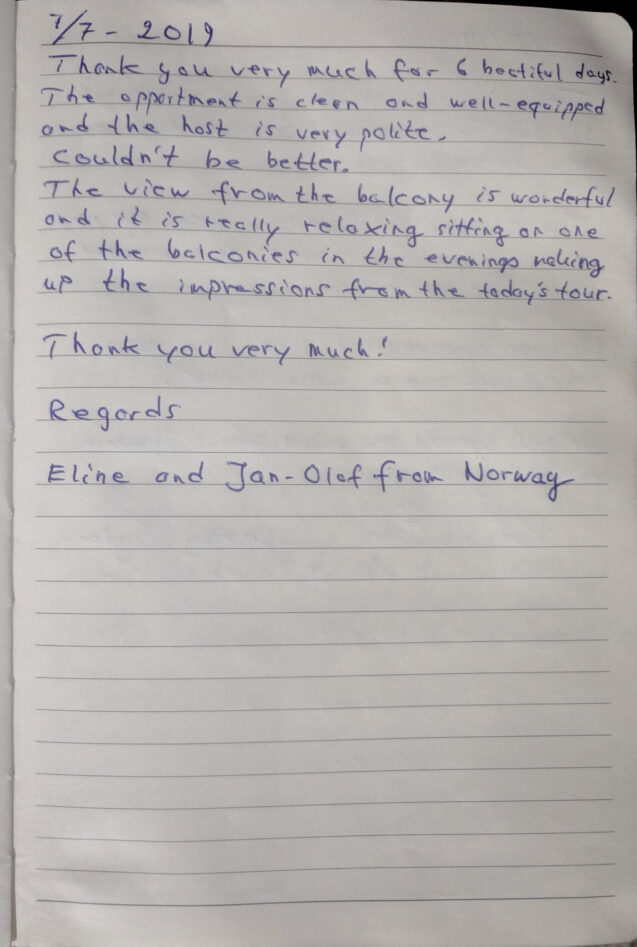 7/7 - 2019
Thank you very much for 6 beatiful days.
The appartment is clean and well-equipped
and the host is very polite.
Couldn't be better.
The view from the balcony is wonderful
and it is really relaxing sitting on one
of the balconies in the evenings making
up the impressions from the today's tour.
Thank you very much!
Regards
Eline and Jan-Olaf from Norway